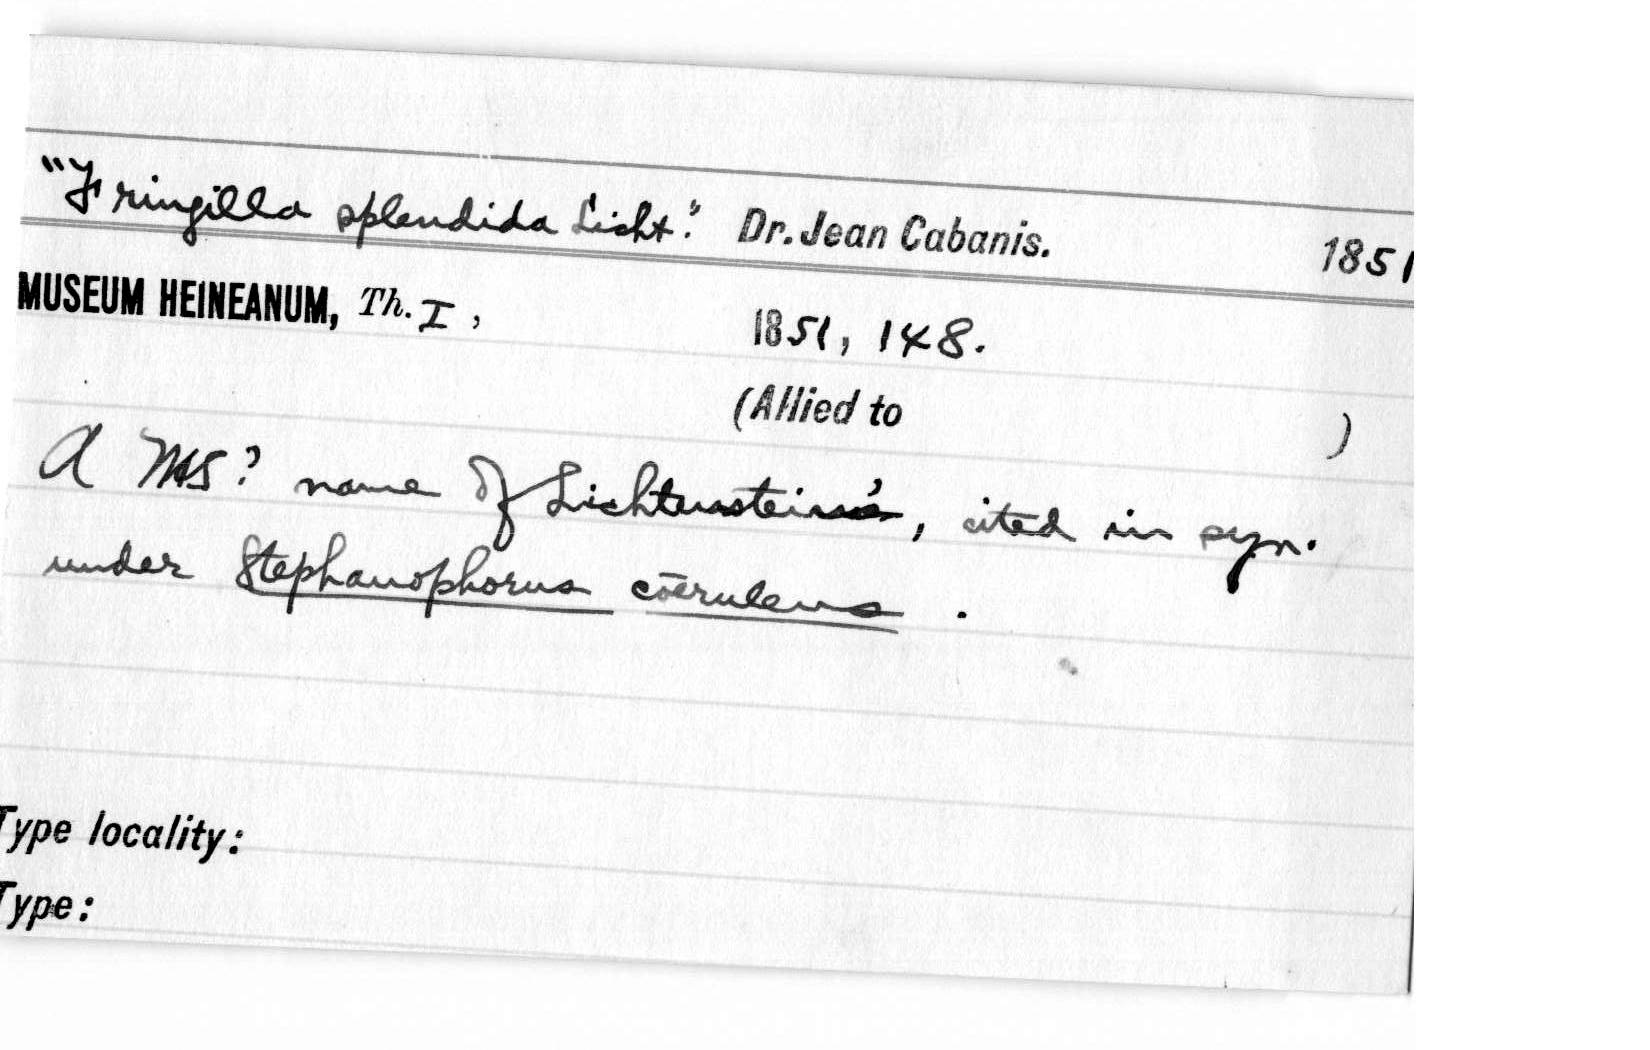 "Fringilla splendida Licht." Dr. Jean Cabanis. 1851
MUSEUM HEINEANUM, Th. I, 1851, 148.
(Allied to )
A MS? name of Lichtenstein's, cited in syn.
under Stephanophorus cœruleus .
Type locality:
Type: